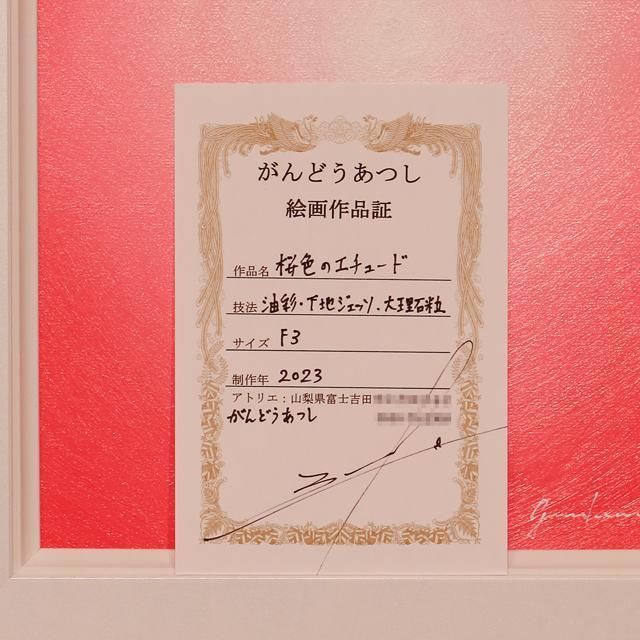 がんどうあつし
絵画作品証
作品名 桜色のエチュード
技法 油彩・下地ジェッソ、大理石粒
サイズ F3
制作年 2023
アトリエ：山梨県富士吉田
がんどうあつし